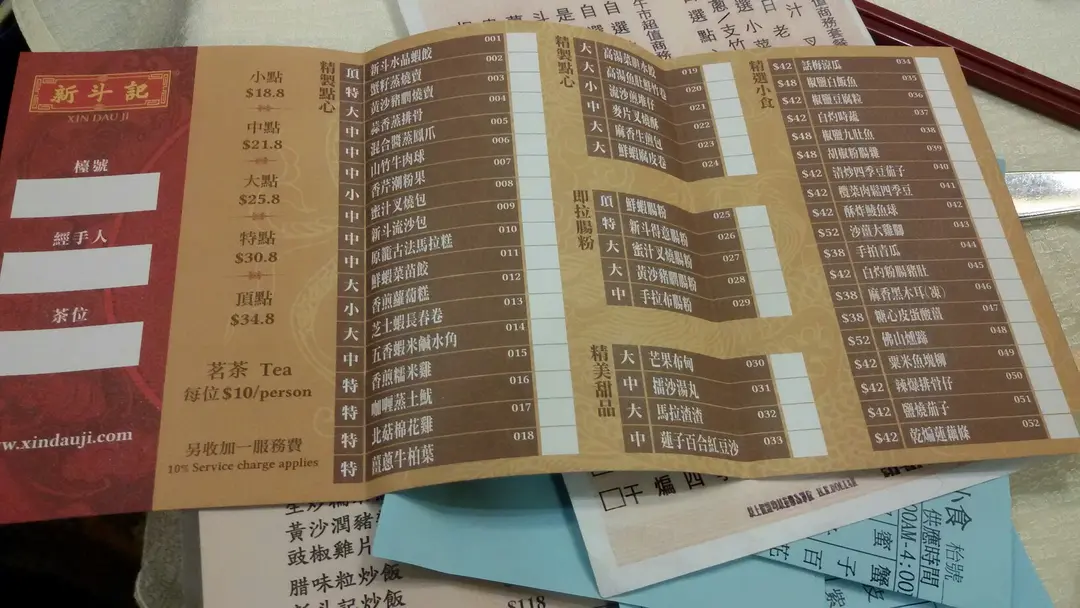 新斗記
XIN DAU JI
檯號
經手人
茶位
www.xindauji.com
小點
$18.8
中點
$21.8
大點
$25.8
特點
$30.8
頂點
$34.8
茗茶 Tea
每位$10/person
另收加一服務費
10% Service charge applies
精製點心
頂 新斗水晶蝦餃 001
特 蟹籽蒸燒賣 002
大 黃沙豬膶燒賣 003
中 蒜香蒸排骨 004
中 混合醬蒸鳳爪 005
中 山竹牛肉球 006
小 香芹潮粉果 007
中 蜜汁叉燒包 008
中 新斗流沙包 009
中 原籠古法馬拉糕 010
大 鮮蝦菜苗餃 011
小 香煎蘿蔔糕 012
大 芝士蝦長春卷 013
中 五香蝦米鹹水角 014
特 香煎糯米雞 015
特 咖喱蒸土魷 016
特 北菇棉花雞 017
特 薑蔥牛柏葉 018
精製點心
大 019
大 高湯魚肚鮮竹卷 020
小 流沙煎堆仔 021
中 麥片叉燒酥 022
大 麻香生煎包 023
鮮蝦腐皮卷 024
即拉腸粉
頂 鮮蝦腸粉 025
特 新斗得意腸粉 026
大 蜜汁叉燒腸粉 027
大 黃沙豬膶腸粉 028
中 手拉布腸粉 029
精美甜品
大 芒果布甸 030
中 擂沙湯丸 031
大 馬拉渣渣 032
中 蓮子百合紅豆沙 033
精選小食
$42 話梅涼瓜 034
$48 椒鹽白飯魚 035
$42 椒鹽豆腐粒 036
$42 037
$48 椒鹽九肚魚 038
$48 胡椒粉腸雞 039
$42 清炒四季豆茄子 040
$42 欖菜肉鬆四季豆 041
$42 酥炸鯪魚球 042
$52 沙薑大雞腳 043
$38 手拍青瓜 044
$42 白灼粉腸豬肚 045
$38 麻香黑木耳(凍) 046
$38 糖心皮蛋酸薑 047
$52 佛山燻蹄 048
$42 粟米魚塊柳 049
$42 辣爆排骨仔 050
$42 鹽燒茄子 051
$42 乾煸蓮藕條 052
黃沙潤豬
豉椒雞片
臘味粒炒飯
新斗記炒飯
$118
干煸四
小食
供應時間